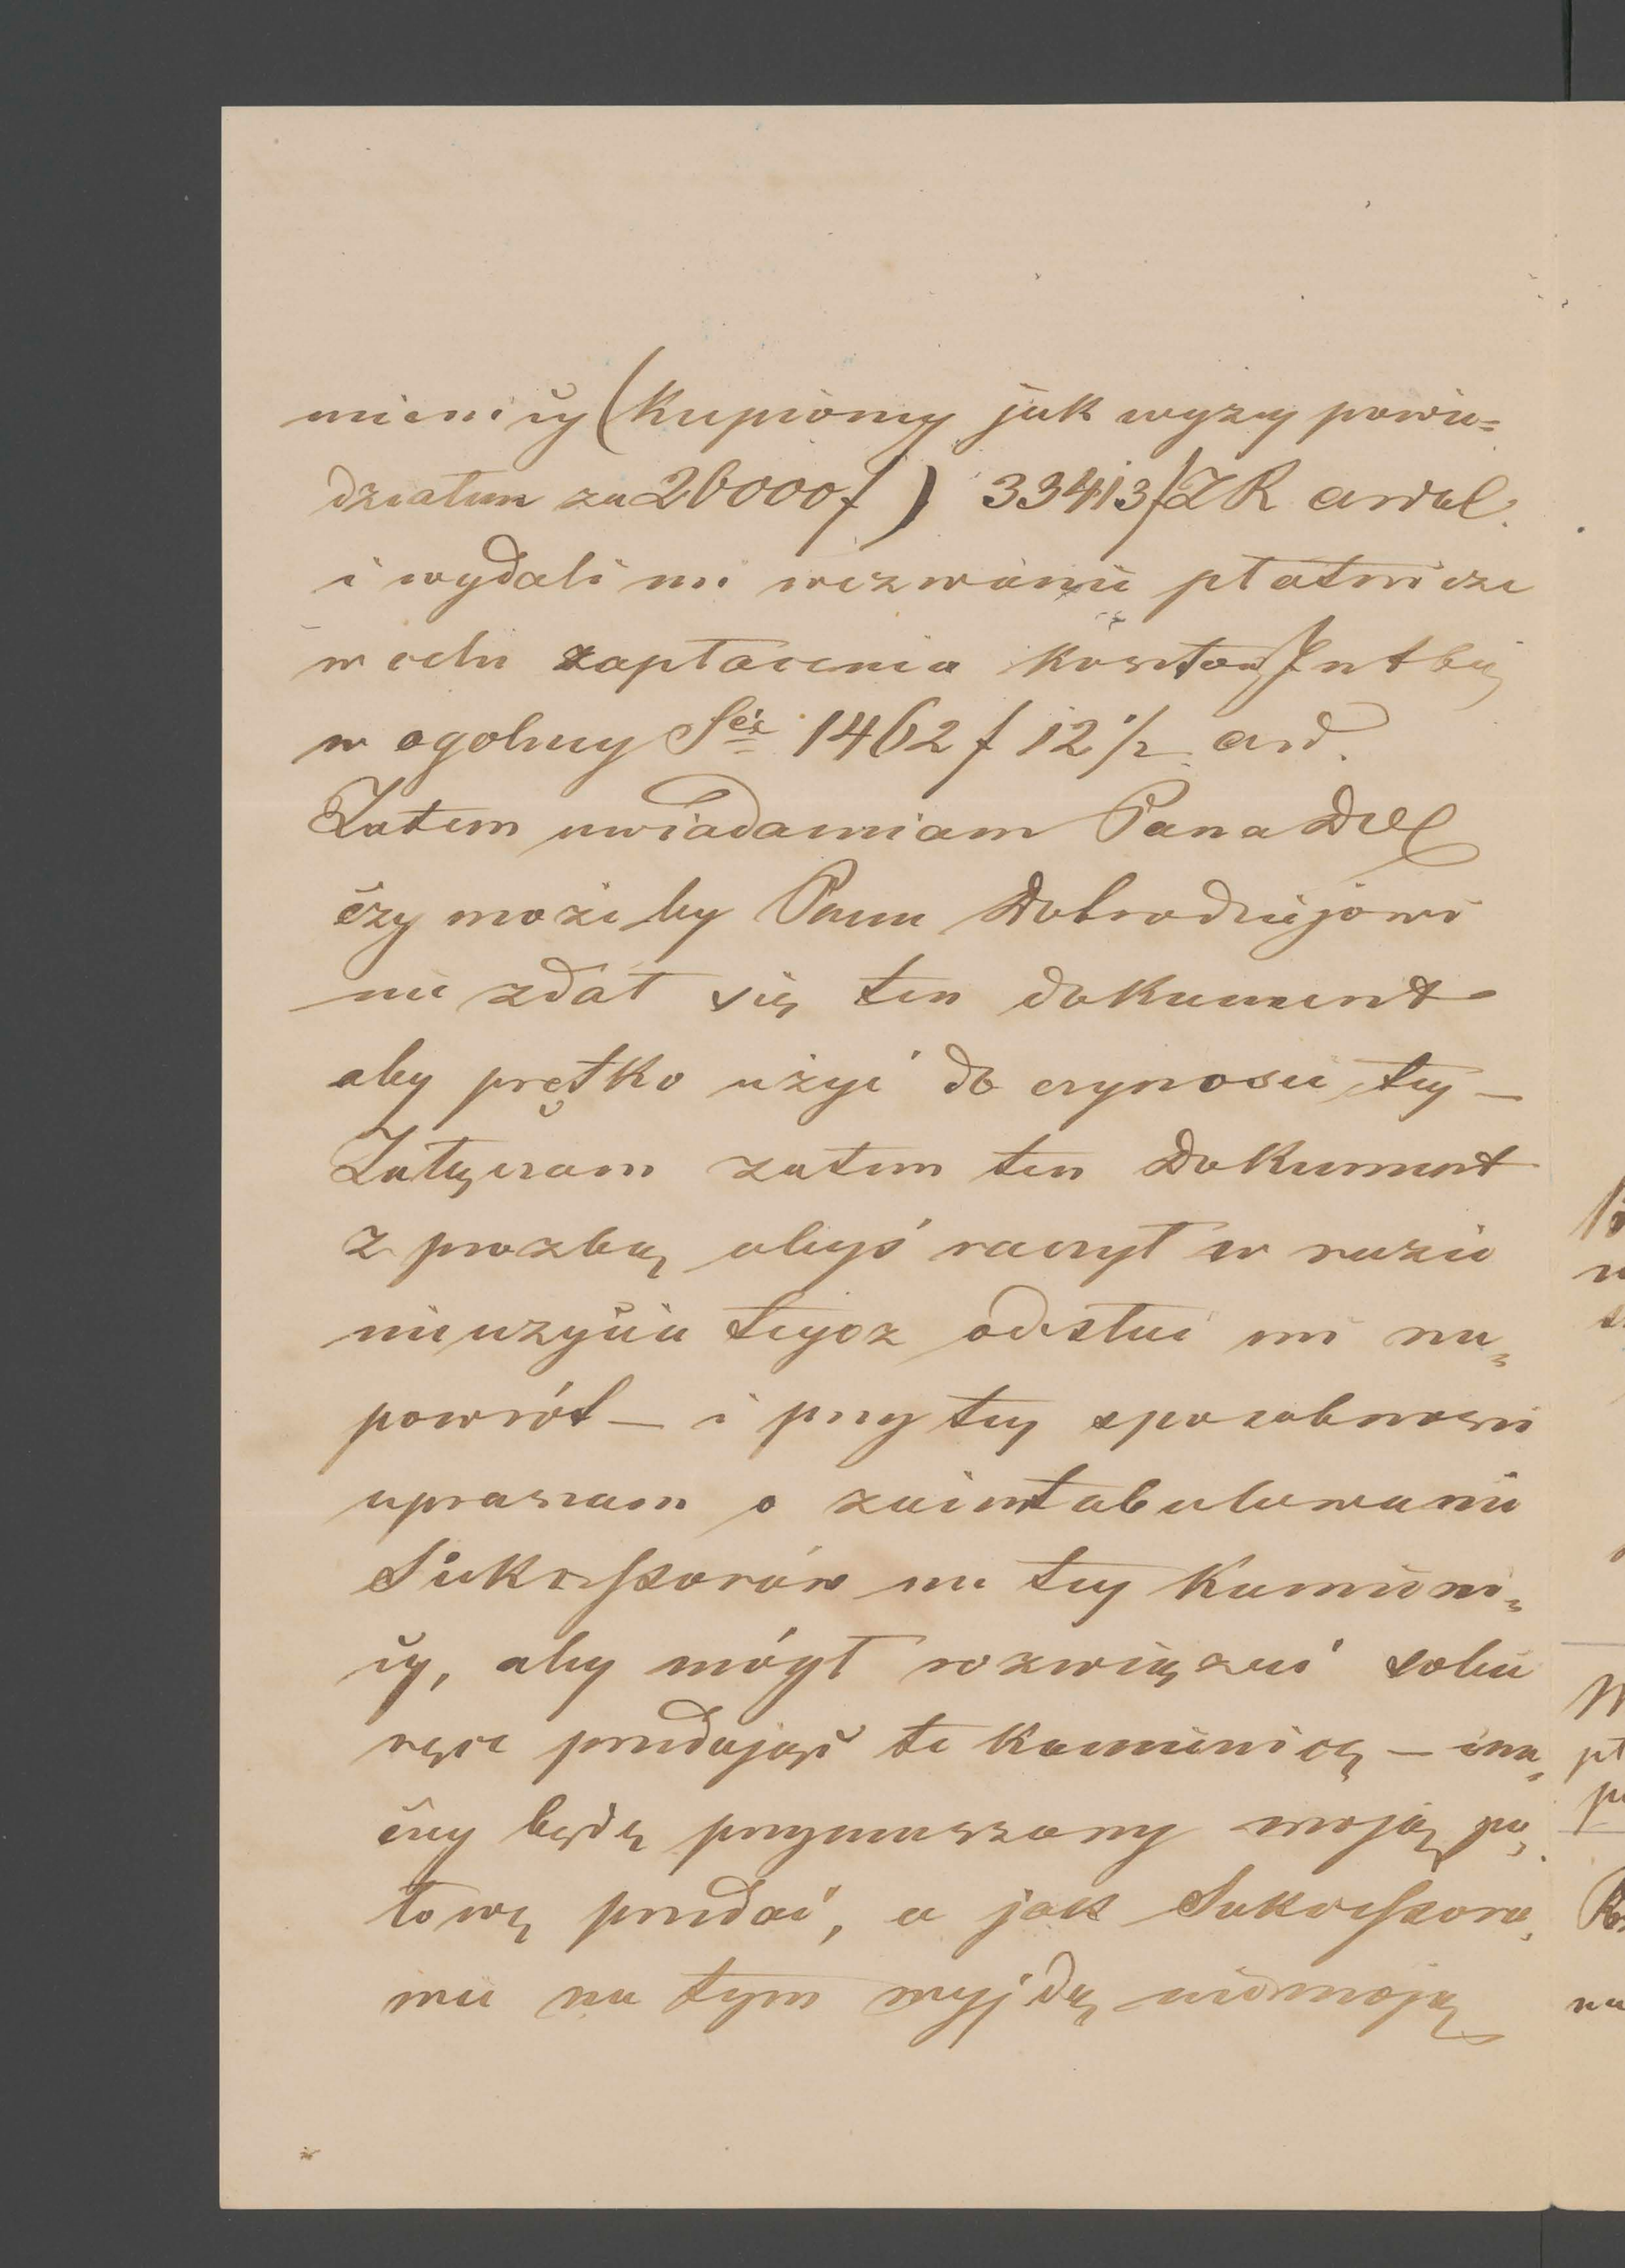 mienicy (kupionej jak wyzej powie=
działem za 26000 f) 33413 f ZR awal.
i wydali mi wezwanie płatnicze
w celu zapłacenia kosztów Intbcij
w ogolney Sċie 1462 f 12 1/2 aw.
Zatem uwiadamiam Pana
czy może by Panu Dobrodziejowi
nie zdał się ten dokument
aby prętko użyć do czynosci tej —
Załączam zatem ten Dokument
z prozbą abyś raczył w razie
nieuzycia tegoz odesłać mi na=
powrót — i przy tej sposobnosci
upraszam o zaintabulowanie
Sukcessorów na tej kamieni=
cy, aby mógł rozwiązać sobie
ręce przedając te kamienicę — ina=
czej będę przymuszony moją po=
łowę przedać, a jak Sukcessoro=
wie na tym wyjdą